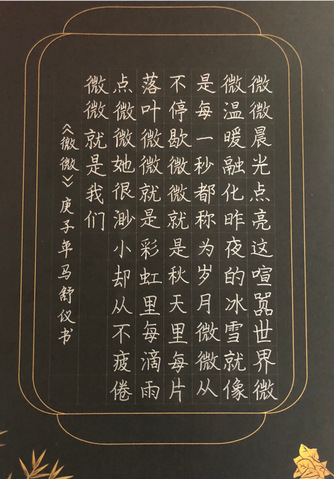 微微晨光点亮这喧嚣世界微
微温暖融化昨夜的冰雪就像
是每一秒都称为岁月微微从
不停歇微微就是秋天里每片
落叶微微就是彩虹里每滴雨
点微微她很渺小却从不疲倦
微微就是我们
《微微》庚子年马舒仪书